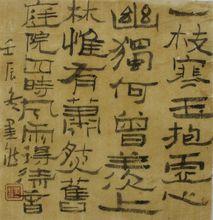 一枝寒玉抱虛心
幽獨何曾羨上
林惟有蕭然舊
庭院四時風雨得清音
壬辰冬